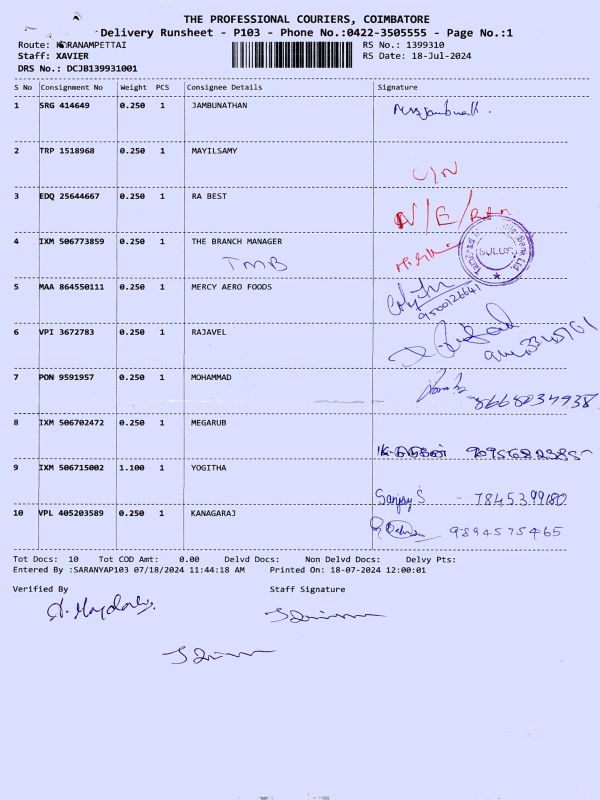 THE PROFESSIONAL COURIERS, COIMBATORE
Delivery Runsheet - P103 - Phone No.:0422-3505555 - Page No.:1
Route: KARANAMPETTAI RS No.: 1399310
Staff: XAVIER RS Date: 18-Jul-2024
DRS No.: DCJB139931001
S No Consignment No Weight PCS Consignee Details Signature
1 SRG 414649 0.250 1 JAMBUNATHAN
2 TRP 1518968 0.250 1 MAYILSAMY
U/N
3 EDQ 25644667 0.250 1 RA BEST
N/E/
4 IXM 506773859 0.250 1 THE BRANCH MANAGER
TMB
SULUR
5 MAA 864550111 0.250 1 MERCY AERO FOODS
9500126641
6 VPI 3672783 0.250 1 RAJAVEL
7 PON 9591957 0.250 1 MOHAMMAD
8668034938
8 IXM 506702472 0.250 1 MEGARUB
9 IXM 506715002 1.100 1 YOGITHA
Sanjay S - 7845399180
10 VPL 405203589 0.250 1 KANAGARAJ
9894575465
Tot Docs: 10 Tot COD Amt: 0.00 Delvd Docs: Non Delvd Docs: Delvy Pts:
Entered By :SARANYAP103 07/18/2024 11:44:18 AM Printed On: 18-07-2024 12:00:01
Verified By Staff Signature